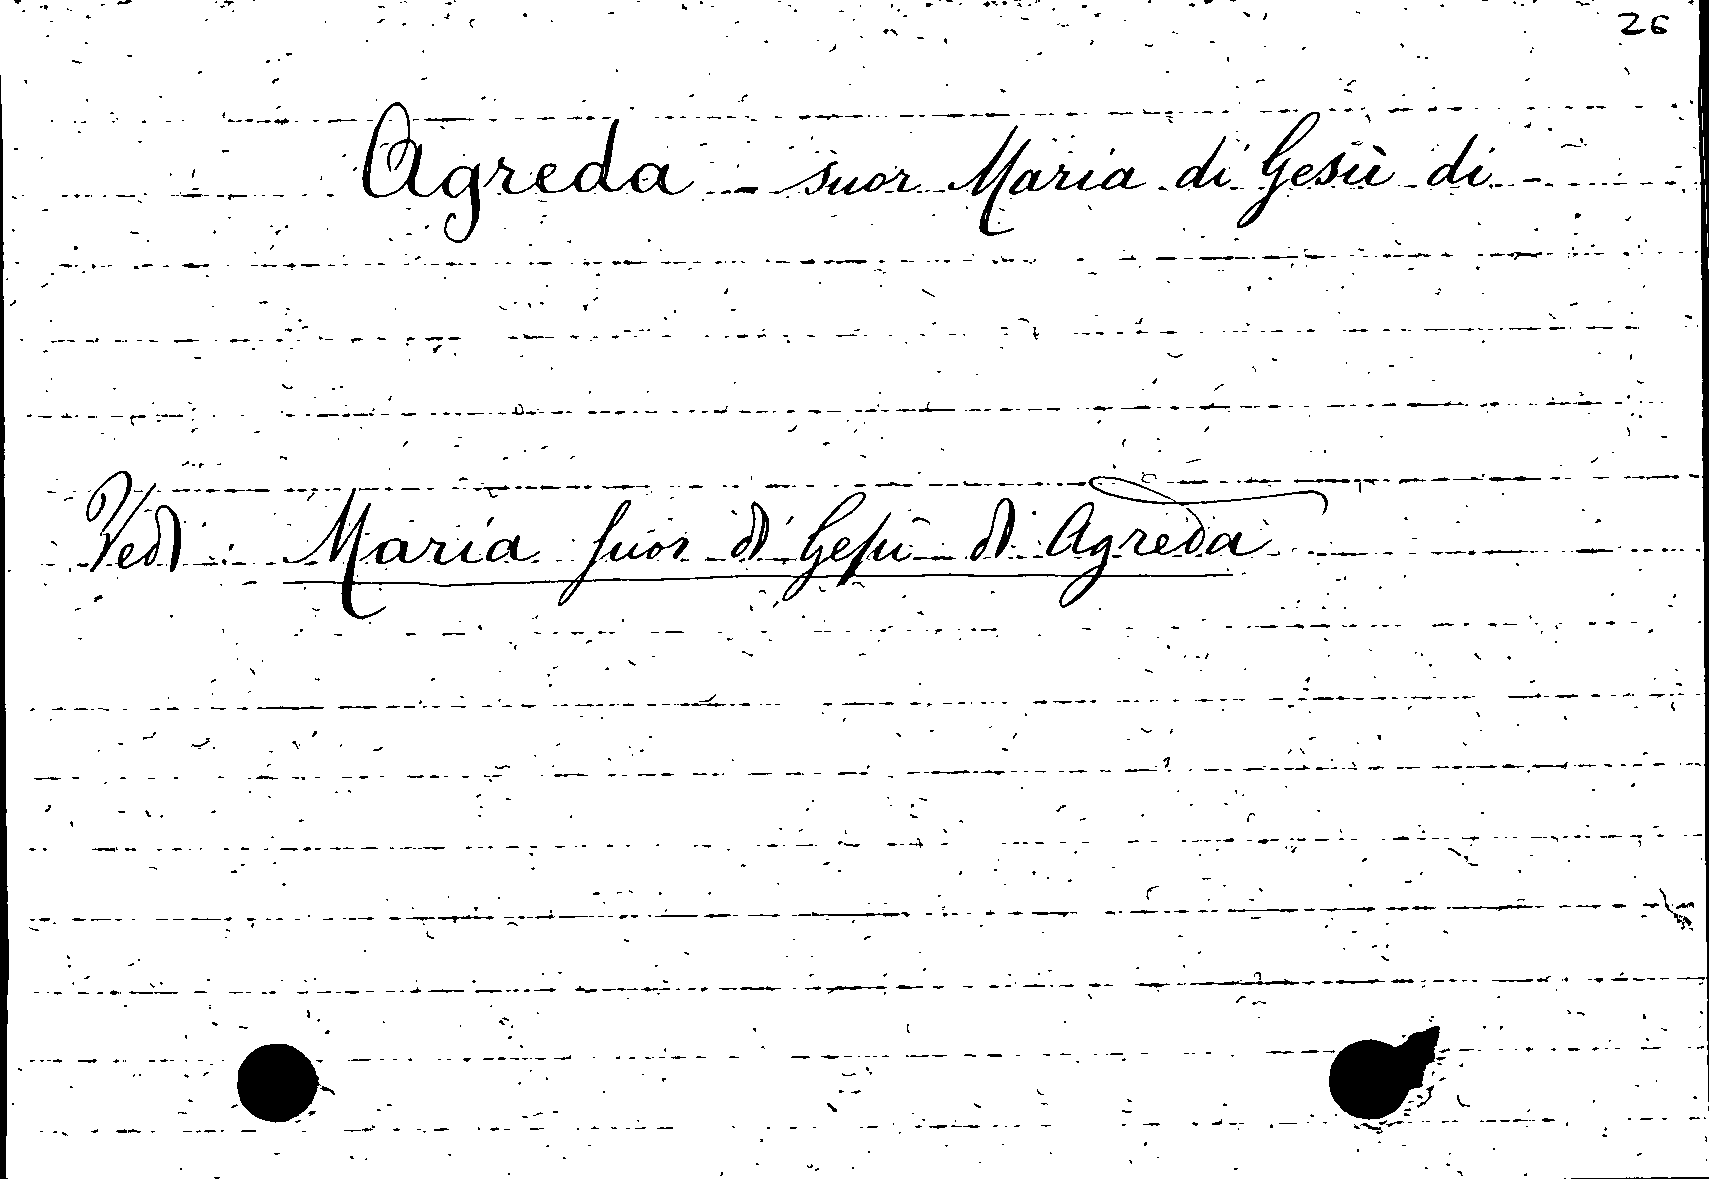 26
Agreda - suor Maria di Gesù di
Vedi : Maria suor di Gesù di Agreda